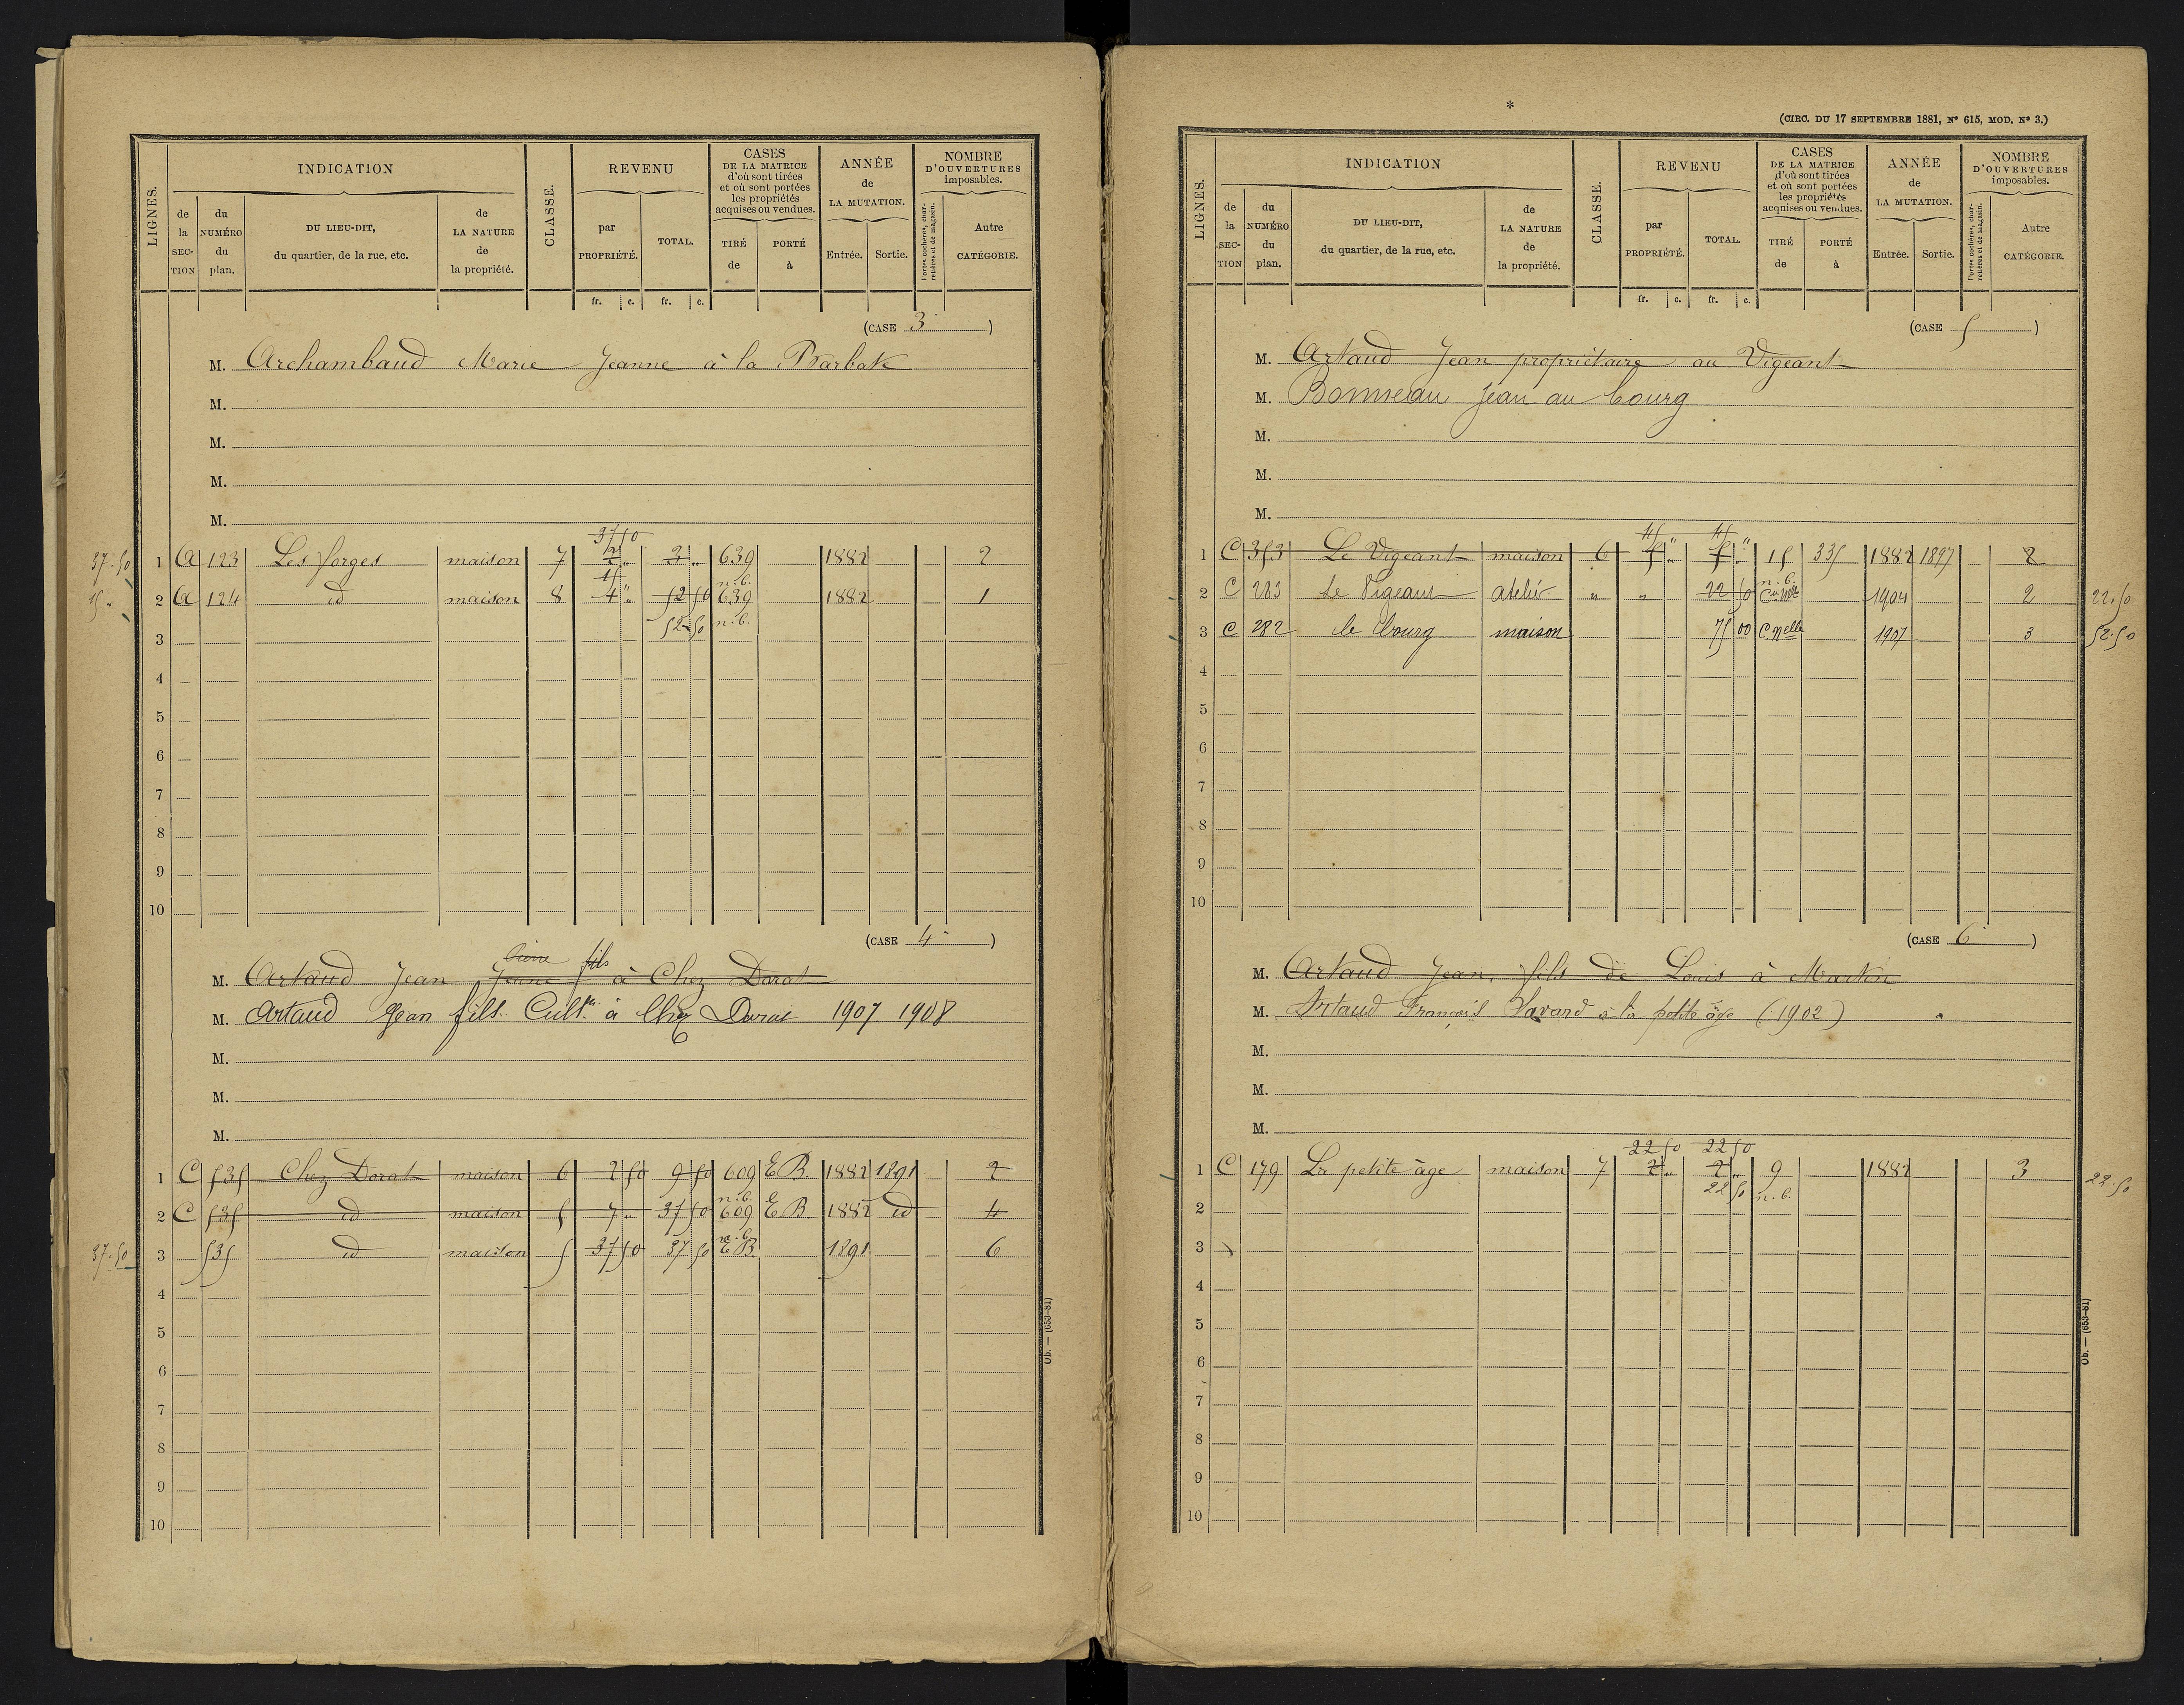 LIGNES.
INDICATION
de la SECTION
du NUMÉRO du plan.
DU LIEU-DIT, du quartier, de la rue, etc.
de LA NATURE de la propriété.
CLASSE.
REVENU
par PROPRIÉTÉ.
TOTAL.
fr. c. fr. c.
CASES DE LA MATRICE d'où sont tirées et où sont portées les propriétés acquises ou vendues.
TIRÉ de
PORTÉ à
ANNÉE de LA MUTATION.
Entrée. Sortie.
NOMBRE D'OUVERTURES imposables.
Portes cochères, charretières et de magasin.
Autre CATÉGORIE.
(CASE 3)
M. Archambaud Marie Jeanne à la Barbate
M.
M.
M.
M.
37 50
37.50 1 A 123 Les forges maison 7 3 " 639 1882 2
15 " n.b.
15. 2 A 124 id maison 8 4 " 52 50 639 1882 1
3 52 50 n.b.
4
5
6
7
8
9
10
(CASE 4)
Pierre fils
M. Artaud Jean Jeune à Chez Dorat
M. Artaud Jean fils Cultr à Chez Dorat 1907 1908
M.
M.
M.
1 C 535 Chez Dorat maison 6 2 50 9 50 609 E B. 1882 1891 2
n.b.
2 C 535 id maison 5 7 " 37 50 609 E B 1882 id 4
n.b.
37.50 3 535 id maison 5 37 50 37 50 E B. 1891 6
4
5
6
7
8
9
10
Ob. — (653-81)
*
(CIRC. DU 17 SEPTEMBRE 1881, N° 615, MOD. N° 3.)
LIGNES.
INDICATION
de la SECTION
du NUMÉRO du plan.
DU LIEU-DIT, du quartier, de la rue, etc.
de LA NATURE de la propriété.
CLASSE.
REVENU
par PROPRIÉTÉ.
TOTAL.
fr. c. fr. c.
CASES DE LA MATRICE d'où sont tirées et où sont portées les propriétés acquises ou vendues.
TIRÉ de
PORTÉ à
ANNÉE de LA MUTATION.
Entrée. Sortie.
NOMBRE D'OUVERTURES imposables.
Portes cochères, charretières et de magasin.
Autre CATÉGORIE.
(CASE 5)
M. Artaud Jean propriétaire au Vigeant
M. Bonneau Jean au bourg
M.
M.
M.
45 " 45 "
1 C 353 Le Vigeant maison 6 5 " 5 " 15 335 1882 1897 2
n.b.
2 C 283 Le Vigeant atelier " " 22 50 Con Nlle 1904 2 22.50
3 C 282 le bourg maison 75 00 C. Nelle 1907 3 52.50
4
5
6
7
8
9
10
(CASE 6)
M. Artaud Jean, fils de Louis à Martin
M. Artaud François Savard à la petite âge (1902)
M.
M.
M.
22 50 22 50
1 C 179 La petite âge maison 7 2 " 2 " 9 1882 3 22.50
22 50 n.b.
2
3
4
5
6
7
8
9
10
Ob. — (653-81)